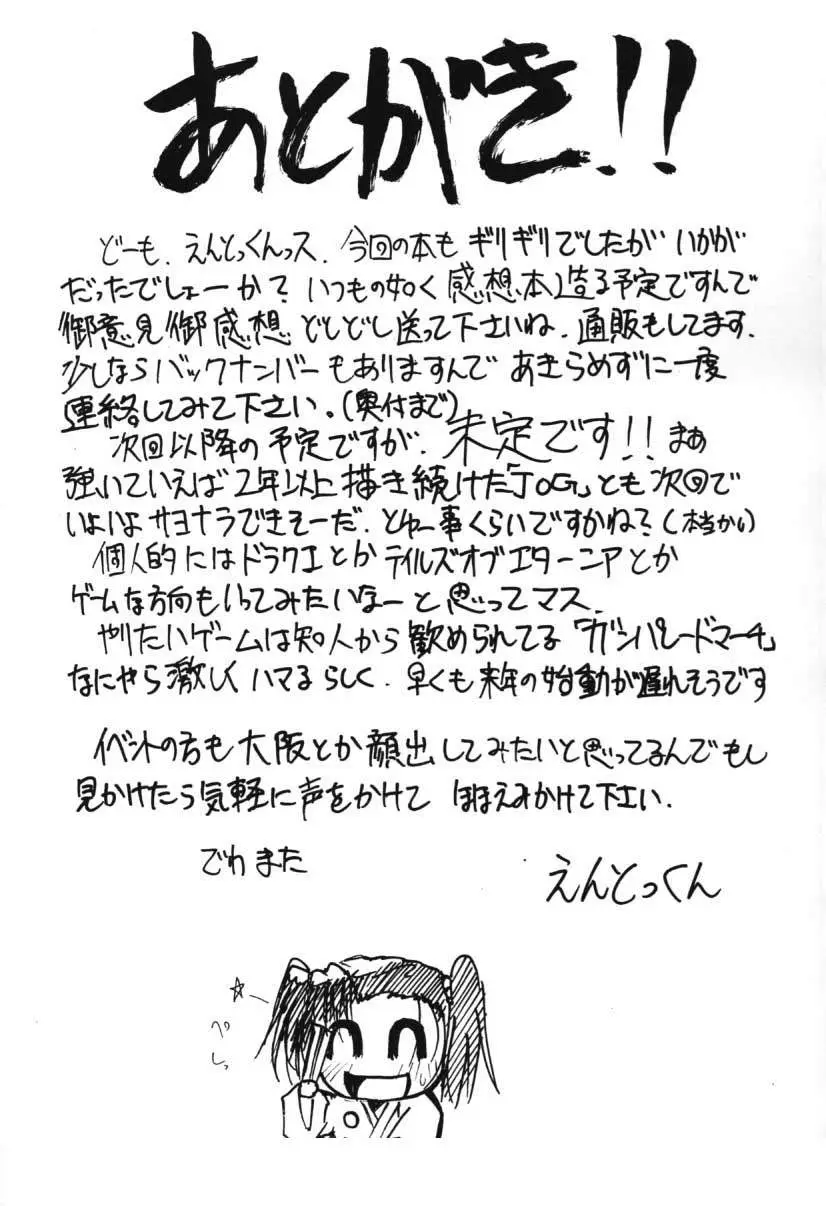 あとがき!!
どーも、えんとっくんっス。今回の本もギリギリでしたがいかが
だったでしょーか?いつもの如く感想本造る予定ですんで
御意見御感想どしどし送って下さいね。通販もしてます。
少しならバックナンバーもありますんであきらめずに一度
連絡してみて下さい。(奥付まで)
次回以降の予定ですが、未定です!!まぁ
強いていえば2年以上描き続けた「JOG」とも次回で
いよいよサヨナラできそーだ、とゆー事くらいですかね?(本当かい)
個人的にはドラクエとかテイルズオブエターニアとか
ゲームな方向もいってみたいなーと思ってマス。
やりたいゲームは知人から歓められてる「ガンパレードマーチ」
なにやら激しくハマるらしく、早くも来年の始動が遅れそうです
イベントの方も大阪とか顔出してみたいと思ってるんでもし
見かけたら気軽に声をかけてほほえみかけて下さい。
でわまた
えんとっくん
ぺしっ